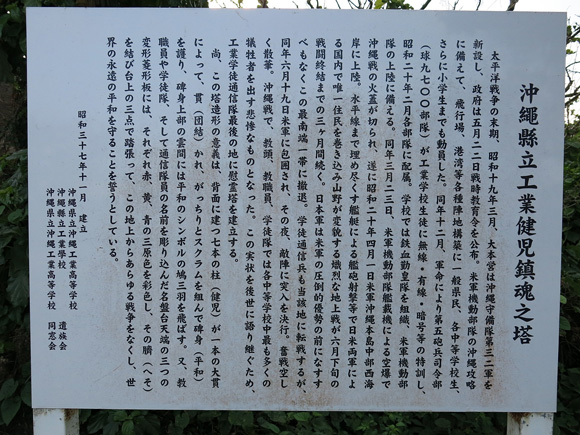 沖縄縣立工業健児鎮魂之塔
太平洋戦争の末期、昭和十九年三月、大本営は沖縄守備隊第三二軍を
新設し、政府は五月二二日戦時教育令を公布。米軍機動部隊の沖縄攻略
に備えて、飛行場、港湾等各種陣地構築に一般県民、各中等学校生、
さらに小学生までも動員した。同年十二月、軍命により第五砲兵司令部
(球九七〇〇部隊)が工業学校生徒に無線・有線・暗号等の特訓し、
昭和二十年二月各部隊に配属。学校では鉄血勤皇隊を組織、米軍機動部
隊の上陸に備える。同年三月二三日、米軍機動部隊艦載機による空爆で
沖縄戦の火蓋が切られ、遂に昭和二十年四月一日米軍沖縄本島中部西海
岸に上陸。水平線まで埋め尽くす艦艇による艦砲射撃等で日米両軍によ
る国内で唯一住民を巻き込み山野が変貌する熾烈な地上戦が六月下旬の
戦闘終結までの三ヶ月間続く。日本軍は米軍の圧倒的優勢の前になすす
べもなくこの最南端一帯に撤退。学徒通信兵も当該地に転戦するが、
同年六月十九日米軍に包囲され、その夜、敵陣に突入を決行。奮戦空し
く散華。沖縄戦で、教頭、教職員、学徒隊では各中等学校中最も多くの
犠牲者を出す悲惨なものとなった。この実状を後世に語り継ぐため、
工業学徒通信隊最後の地に慰霊塔を建立する。
尚、この塔造形の意義は、背面に建つ七本の柱(健児)が一本の大貫
によって、貫(団結)かれ、がっちりとスクラムを組んで碑身(平和)
を護り、碑身上部の雲間には平和のシンボルの鳩三羽を飛ばす。又、教
職員や学徒隊、そして通信隊員の名前を彫り込んだ名盤台天端の三つの
変形菱形板には、それぞれ赤、黄、青の三原色を彩色し、その臍(へそ)
を結び台上の三点で踏張って、この地上からあらゆる戦争をなくし、世
界の永遠の平和を守ることを誓うとしている。
昭和三十七年十一月 建立
沖縄県立沖縄工業高等学校 遺族会
沖縄縣立工業學校
沖縄県立沖縄工業高等学校 同窓会